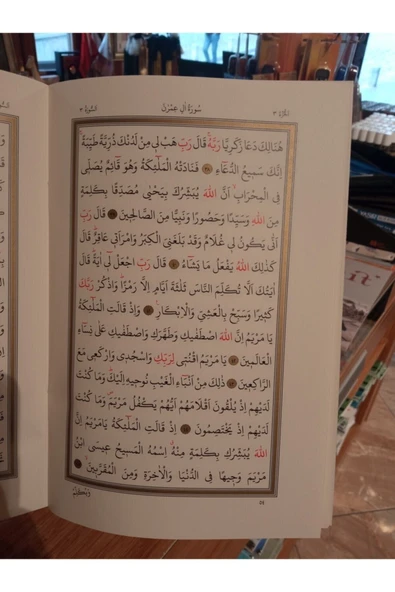 سُورَةُ اٰلِ عِمْرٰنَ
هُنَالِكَ دَعَا زَكَرِيَّا رَبَّهُۚ قَالَ رَبِّ هَبْ ل۪ي مِنْ لَدُنْكَ ذُرِّيَّةً طَيِّبَةًۚ
اِنَّكَ سَم۪يعُ الدُّعَٓاءِ فَنَادَتْهُ الْمَلٰٓئِكَةُ وَهُوَ قَٓائِمٌ يُصَلّ۪ي
فِي الْمِحْرَابِۙ اَنَّ اللّٰهَ يُبَشِّرُكَ بِيَحْيٰى مُصَدِّقًا بِكَلِمَةٍ
مِنَ اللّٰهِ وَسَيِّدًا وَحَصُورًا وَنَبِيًّا مِنَ الصَّالِح۪ينَ قَالَ رَبِّ
اَنّٰى يَكُونُ ل۪ي غُلَامٌ وَقَدْ بَلَغَنِيَ الْكِبَرُ وَامْرَاَت۪ي عَاقِرٌۜ قَالَ
كَذٰلِكَ اللّٰهُ يَفْعَلُ مَا يَشَٓاءُ قَالَ رَبِّ اجْعَلْ ل۪ٓي اٰيَةًۜ قَالَ
اٰيَتُكَ اَلَّا تُكَلِّمَ النَّاسَ ثَلٰثَةَ اَيَّامٍ اِلَّا رَمْزًاۜ وَاذْكُرْ رَبَّكَ
كَث۪يرًا وَسَبِّحْ بِالْعَشِيِّ وَالْاِبْكَارِ۟ وَاِذْ قَالَتِ الْمَلٰٓئِكَةُ
يَا مَرْيَمُ اِنَّ اللّٰهَ اصْطَفٰيكِ وَطَهَّرَكِ وَاصْطَفٰيكِ عَلٰى نِسَٓاءِ
الْعَالَم۪ينَ يَا مَرْيَمُ اقْنُت۪ي لِرَبِّكِ وَاسْجُد۪ي وَارْكَع۪ي مَعَ
الرَّاكِع۪ينَ ذٰلِكَ مِنْ اَنْبَٓاءِ الْغَيْبِ نُوح۪يهِ اِلَيْكَۜ وَمَا كُنْتَ
لَدَيْهِمْ اِذْ يُلْقُونَ اَقْلَامَهُمْ اَيُّهُمْ يَكْفُلُ مَرْيَمَۖ وَمَا كُنْتَ
لَدَيْهِمْ اِذْ يَخْتَصِمُونَ اِذْ قَالَتِ الْمَلٰٓئِكَةُ يَامَرْيَمُ اِنَّ
اللّٰهَ يُبَشِّرُكِ بِكَلِمَةٍ مِنْهُۗ اِسْمُهُ الْمَس۪يحُ ع۪يسَى ابْنُ
مَرْيَمَ وَج۪يهًا فِي الدُّنْيَا وَالْاٰخِرَةِ وَمِنَ الْمُقَرَّب۪ينَۙ
وَيُكَلِّمُ